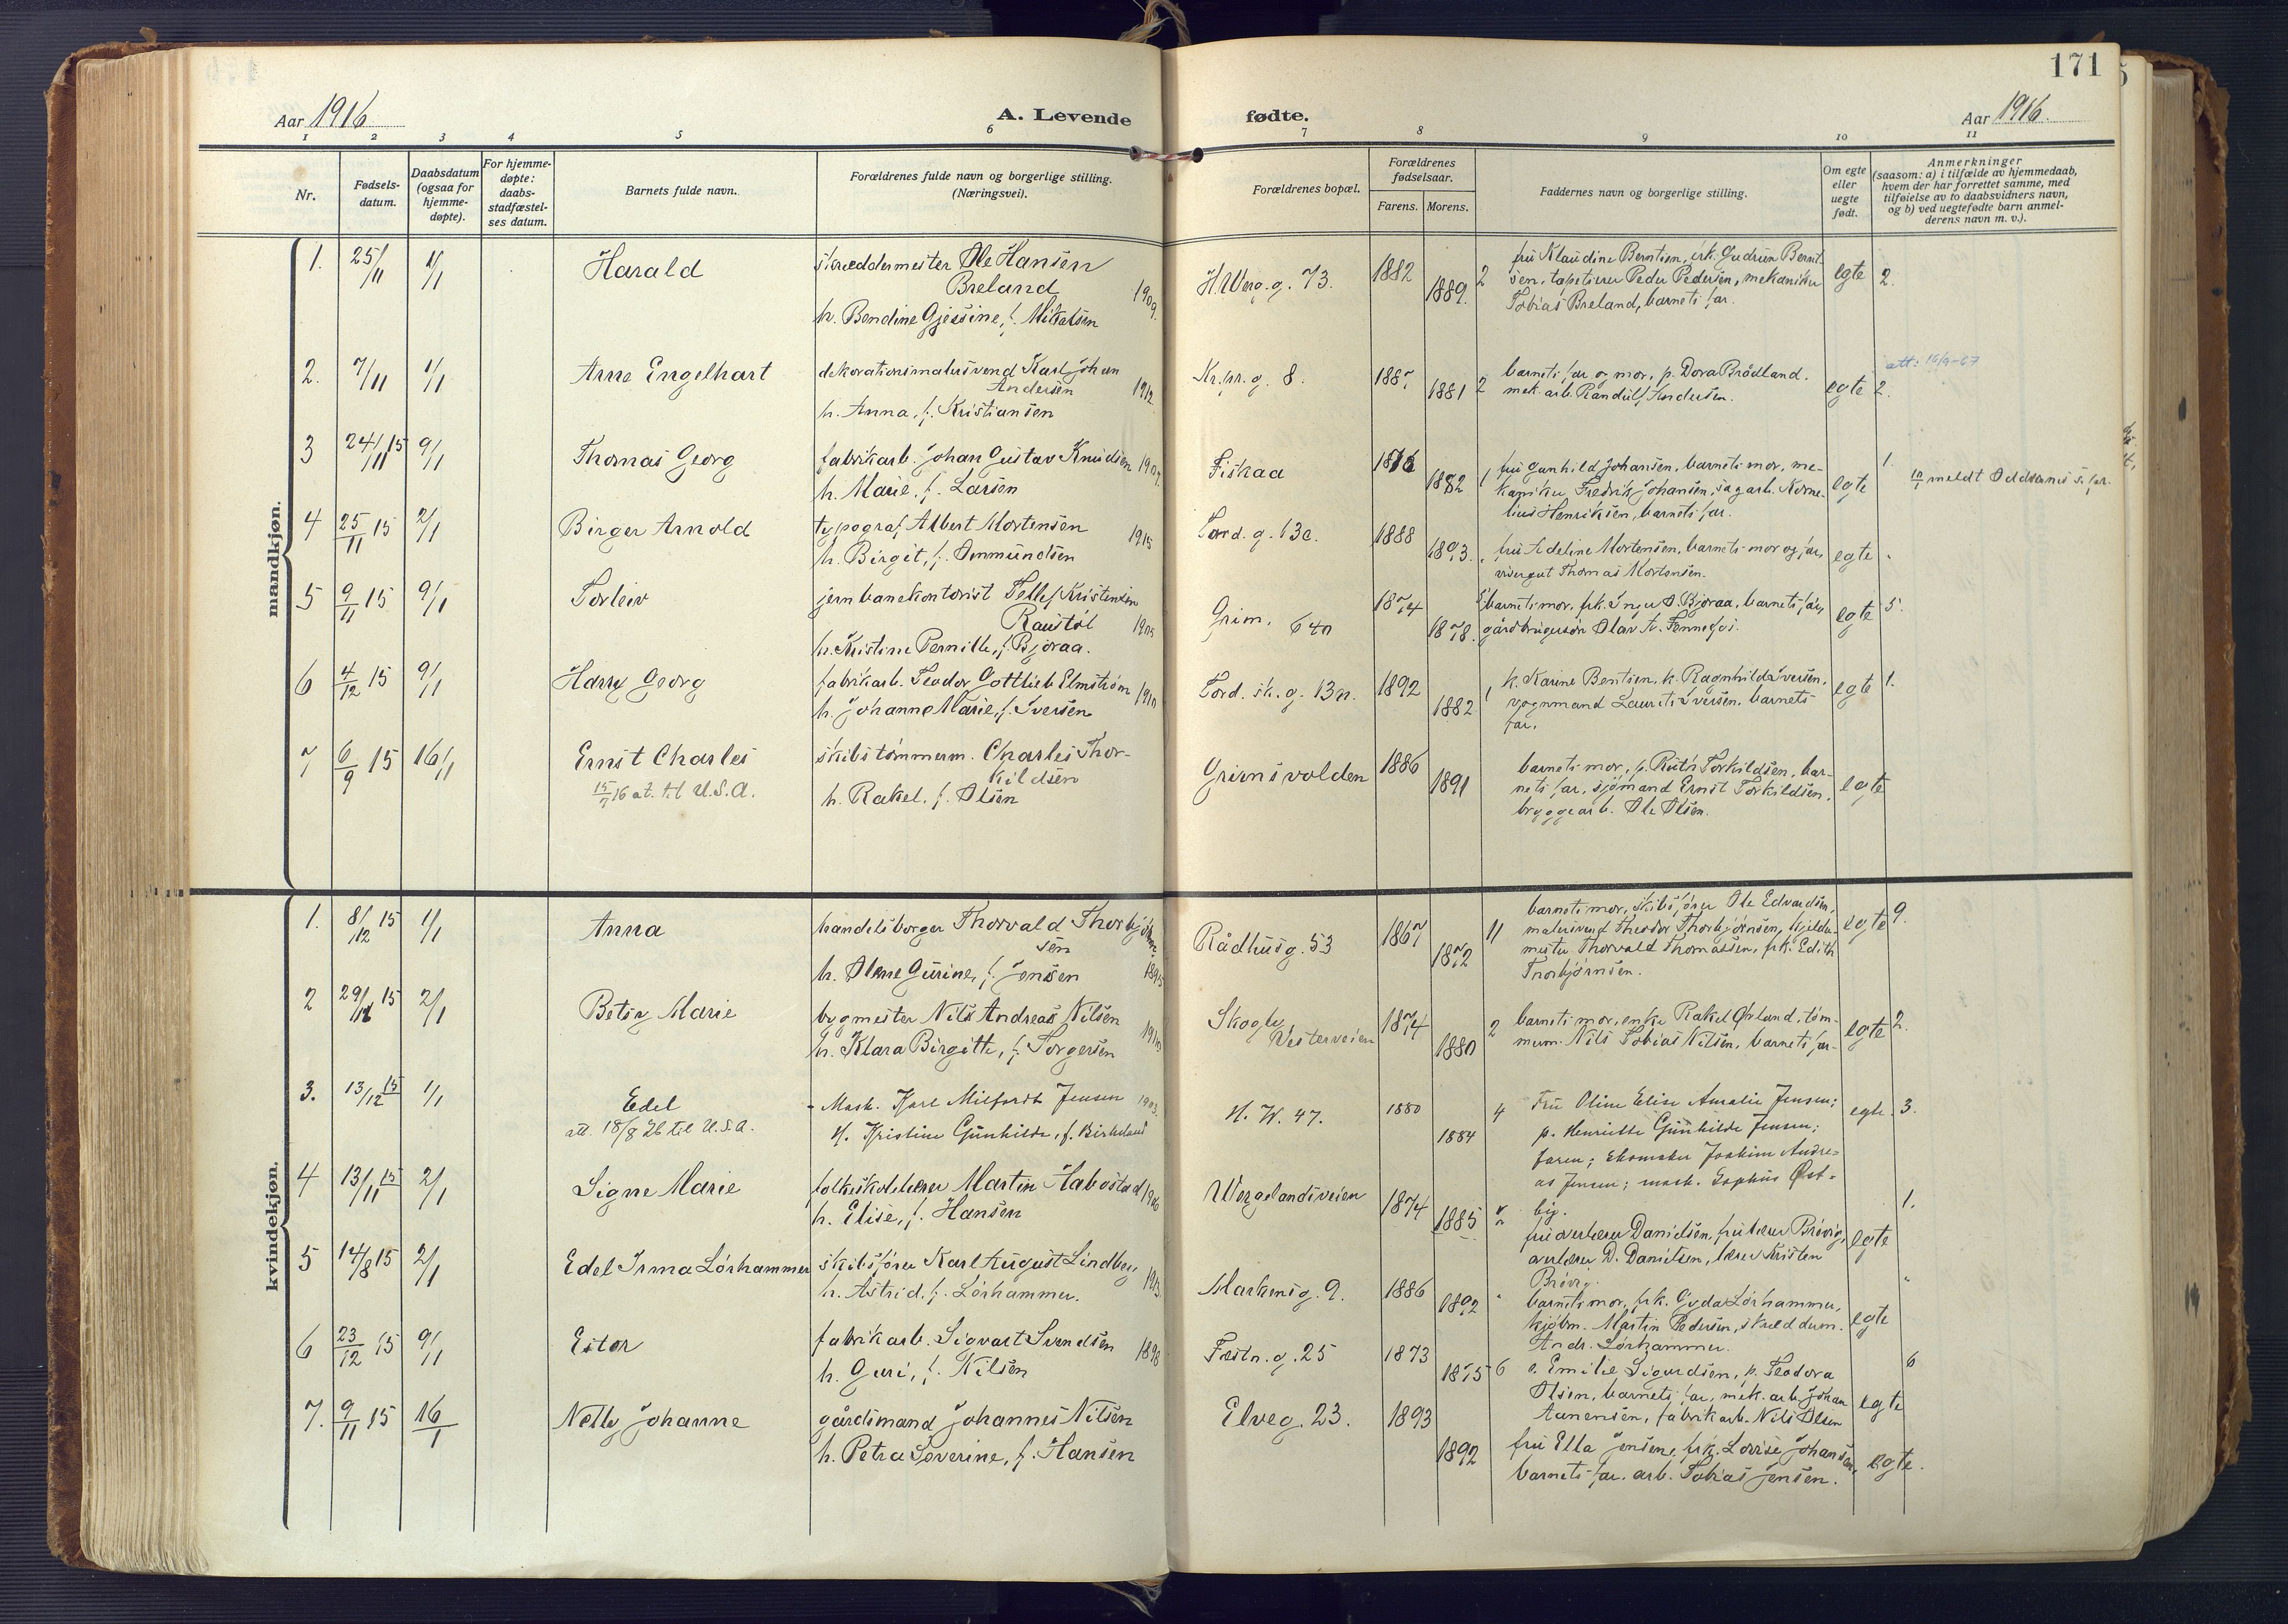 171
Aar 1916
A. Levende
fødte.
Aar 1916.
1 2 3 4 5 6 7 8 9 10 11
Nr.
Fødsels-
datum.
Daabsdatum
(ogsaa for
hjemme-
døpte).
For hjemme-
døpte:
daabs-
stadfæstel-
ses datum.
Barnets fulde navn.
Forældrenes fulde navn og borgerlige stilling.
(Næringsvei).
Forældrenes bopæl.
Forældrenes
fødselsaar.
Farens. Morens.
Faddernes navn og borgerlige stilling.
Om egte
eller
uegte
født.
Anmerkninger
(saasom: a) i tilfælde av hjemmedaab,
hvem der har forrettet samme, med
tilføielse av to daabsvidners navn,
og b) ved uegtefødte barn anmel-
derens navn m. v.).
mandkjøn.
1. 25/11 1/1 Harald
skræddermester Ole Hansen
Breland 1909.
h. Bendine Gjessine, f. Mikalsen
H.Werg.g. 73. 1882 1889. 2
fru Klaudine Berntsen, frk. Gudrun Bernt-
sen, tapetserer Peder Pedersen, mekaniker
Tobias Breland, barnets far.
egte 2.
2. 7/11 1/1 Arne Engelhart
dekorationsmalersvend Karl Johan
Andersen 1912.
h. Anna, f. Kristiansen
Kr.pr.g. 8. 1887 1881 2
barnets far og mor, p. Dora Brådland.
mek. arb. Randulf Andersen.
egte 2.
att: 16/9-67
3 24/11 15 9/1 Thomas Georg
fabrikarb. Johan Gustav Knudsen
h. Marie, f. Larsen
Fiskaa 1882 1
fru Gunhild Johansen, barnets mor, me-
kaniker Fredrik Johansen, sagarb. Korne-
lius Henriksen, barnets far.
egte 1.
meldt Oddernes s. pr.
4 25/11 15 2/1 Birger Arnold
typograf Albert Mortensen 1915
h. Birgit, f. Ommundsen
Tord. g. 13c. 1888 1893.
fru Adeline Mortensen, barnets mor og far,
visergut Thomas Mortensen.
egte
5 9/11 15 9/1 Torleiv
jernbanekontorist Tellef Kristensen
Raustøl
h. Kristine Pernille, f. Bjoraa.
Grim. 640 1874 1878.
barnets mor, frk. Inger O. Bjoraa, barnets far,
gårdbrugersøn Olav A. Fennefos.
egte 5.
6 4/12 15 9/1 Harry Georg
fabrikarb. Teodor Gottlieb Elmstrøm 1910
h. Johanne Marie, f. Iversen
Tord. sk. g. 13n. 1892 1882 1
k. Karine Bentsen, k. Ragnhild Iversen,
vognmand Laurits Iversen, barnets
far.
egte 1.
7 6/9 15 16/1 Ernst Charles
15/7 16 at. til U.S.A.
skibstømmerm. Charles Thor-
kildsen
h. Rakel, f. Olsen
Grimsvolden 1886 1891
barnets mor, p. Ruth Torkildsen, bar-
nets far, sjømand Ernst Torkildsen,
bryggearb. Ole Olsen.
egte
kvindekjøn.
1. 8/12 15 1/1 Anna
handelsborger Thorvald Thorbjørn-
sen
h. Olene Gurine, f. Jensen 1895
Rådhusg. 53 1867 1872 11
barnets mor, skibsfører Ole Edvardsen,
malersvend Theodor Thorbjørnsen,
mester Thorvald Thomassen, frk. Edith
Thorbjørnsen.
egte 9.
2 29/11 15 2/1 Betsy Marie
bygmester Nils Andreas Nilsen
h. Klara Birgitte, f. Torgersen
Skogly, Vesterveien 1874 1880 2
barnets mor, enke Rakel Øvland, tøm-
merm. Nils Tobias Nilsen, barnets far
egte 2.
3. 13/12 15 1/1 Edel
att. 18/8 26 til U.S.A.
Mask. Karl Milfordt Jensen 1903.
H. Kristine Gunhilde, f. Birkeland
H. W. 47. 1880 1884 4
Fru Oline Elise Amalie Jensen;
p. Henriette Gunhilde Jensen;
faren; skomaker Joakim Andre-
as Jensen; mask. Sophus Øst-
by.
egte. 3.
4 13/11 15 2/1 Signe Marie
folkeskolelærer Martin Habostad
h. Elise, f. Hansen
Wergelandsveien 1874 1885
fru overlærer Danielsen, fru lærer Brøvig,
overlærer D. Danielsen, lærer Kristen
Brøvig.
egte 1.
5 14/8 15 2/1 Edel Irma Lørhammer
skibsfører Karl August Lindberg 1913.
h. Astrid, f. Lørhammer.
Markensg. 9. 1886 1892
barnets mor, frk. Gyda Lørhammer,
kjøbm. Martin Pedersen, skrædderm.
Andr. Lørhammer.
egte
6 23/12 15 9/1 Ester
fabrikarb. Sigvart Svendsen 1898
h. Guri, f. Nilsen
Festn. g. 25 1873 1875 6
e. Emilie Sigurdsen, p. Teodora
Olsen, barnets far, mek. arb. Johan
Aanensen, fabrikarb. Nils Olsen
egte 6
7. 9/11 15 16/1 Nelly Johanne
gårdsmand Johannes Nilsen
h. Petra Severine, f. Hansen
Elveg. 23. 1893 1892
fru Ella Jensen, frk. Lovise Johansen,
barnets far, arb. Tobias Jensen.
egte.